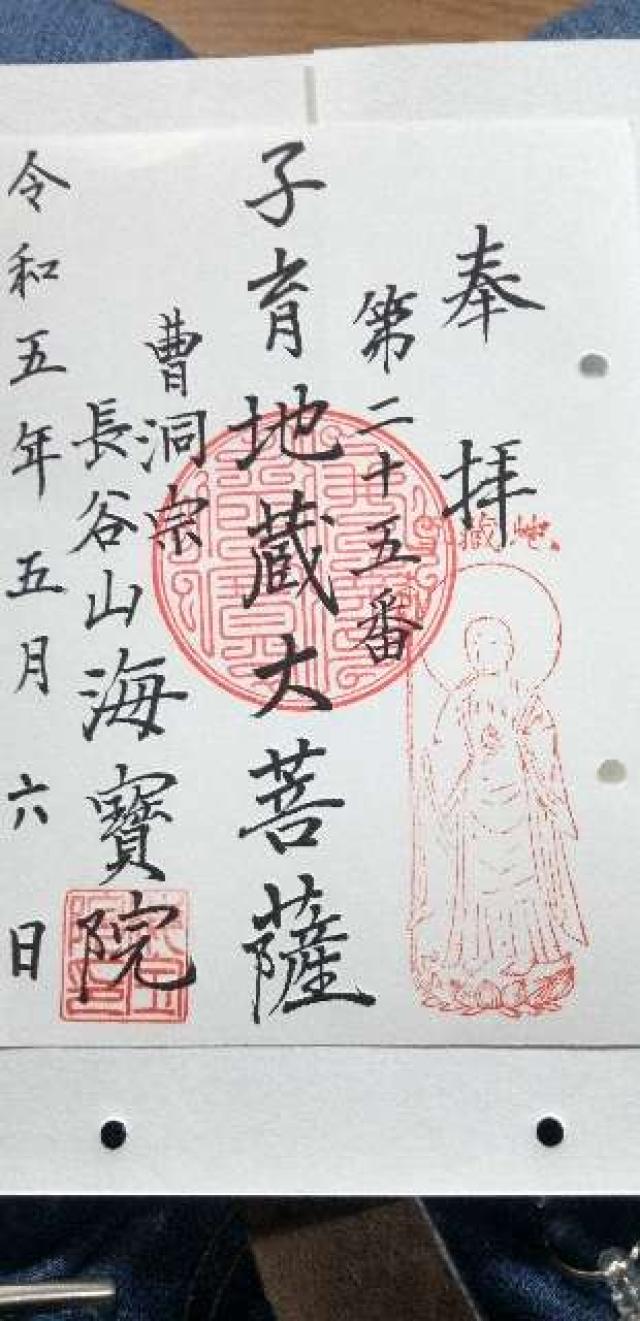 奉拝
第二十五番
子育地蔵大菩薩
曹洞宗
長谷山海寶院
令和五年五月六日